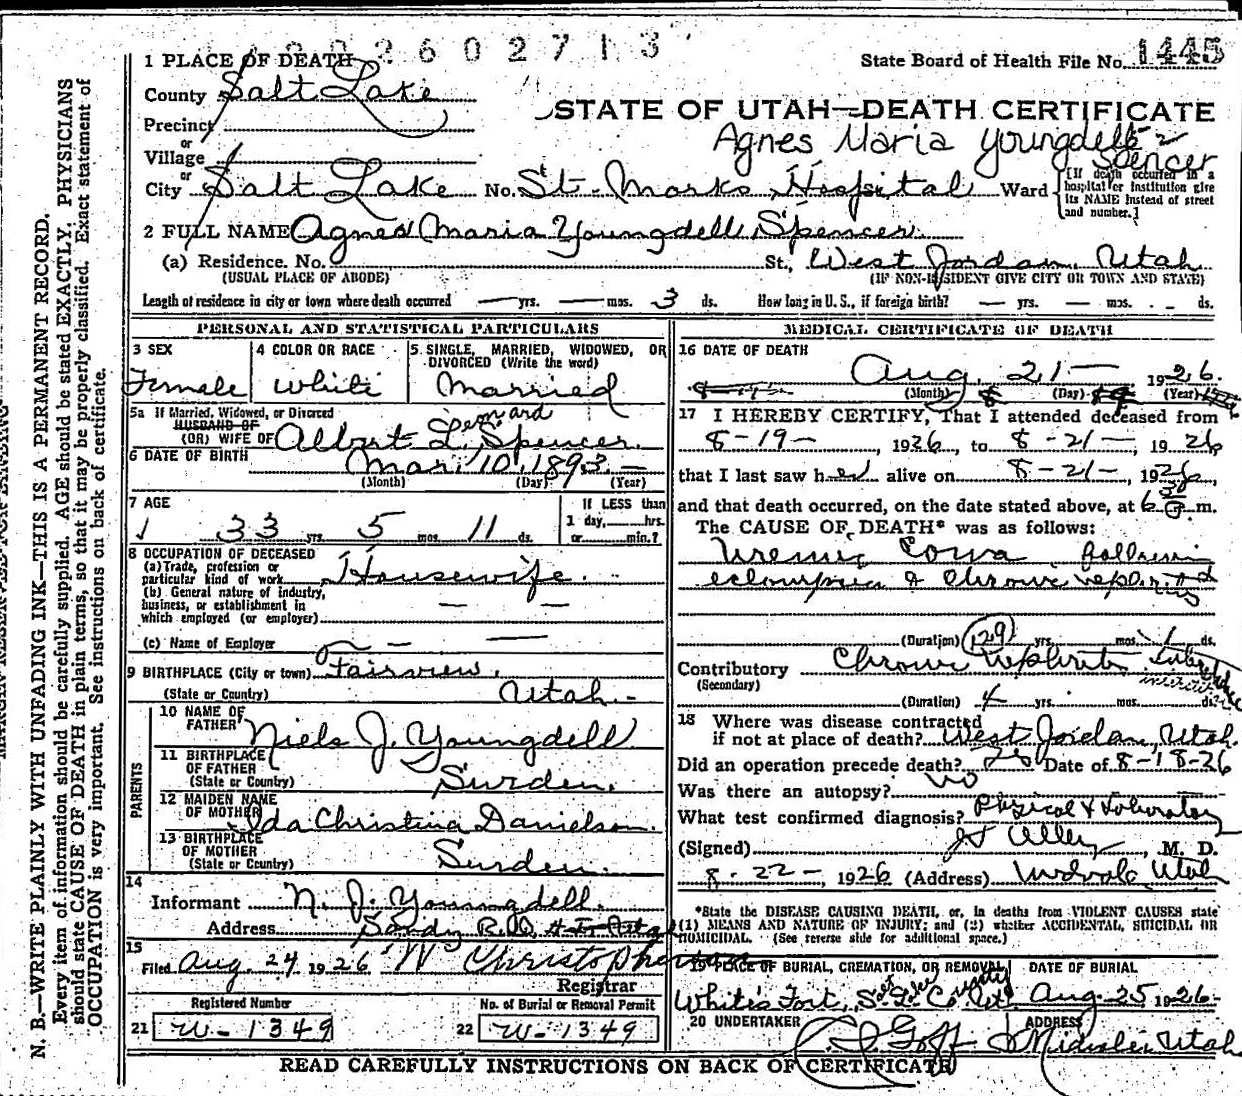 2602713
1 PLACE OF DEATH
State Board of Health File No. 1445
County Salt Lake
STATE OF UTAH—DEATH CERTIFICATE
Precinct
Agnes Maria Youngdell
or
Village
Spencer
or
City Salt Lake No. St. Marks Hospital Ward
[If death occurred in a hospital or institution give its NAME instead of street and number.]
2 FULL NAME Agnes Maria Youngdell Spencer
(a) Residence. No. St., West Jordan, Utah
(USUAL PLACE OF ABODE) (IF NON-RESIDENT GIVE CITY OR TOWN AND STATE)
Length of residence in city or town where death occurred — yrs. — mos. 3 ds. How long in U. S., if foreign birth? — yrs. — mos. - ds.
PERSONAL AND STATISTICAL PARTICULARS
3 SEX
Female
4 COLOR OR RACE
White
5. SINGLE, MARRIED, WIDOWED, OR DIVORCED (Write the word)
Married
5a If Married, Widowed, or Divorced
HUSBAND OF
Leonard
(OR) WIFE OF Albert L. Spencer.
6 DATE OF BIRTH Mar. 10, 1893 —
(Month) (Day) (Year)
7 AGE
33 yrs. 5 mos. 11 ds.
If LESS than
1 day, hrs.
or min.?
8 OCCUPATION OF DECEASED
(a) Trade, profession or
particular kind of work Housewife.
(b) General nature of industry,
business, or establishment in
which employed (or employer) — —
(c) Name of Employer — —
9 BIRTHPLACE (City or town) Fairview.
(State or Country) Utah. -
PARENTS
10 NAME OF
FATHER Niels J. Youngdell
11 BIRTHPLACE
OF FATHER
(State or Country) Sweden.
12 MAIDEN NAME
OF MOTHER Ida Christina Danielson.
13 BIRTHPLACE
OF MOTHER
(State or Country) Sweden.
14
Informant N. J. Youngdell.
Address Sandy R.D. Utah
15
Filed Aug. 24 1926 W Christopherson
Registrar
Registered Number No. of Burial or Removal Permit
21 W-1349 22 W-1349
MEDICAL CERTIFICATE OF DEATH
16 DATE OF DEATH
Aug. 21 — 1926.
(Month) (Day) (Year)
17 I HEREBY CERTIFY, That I attended deceased from
8-19- 1926, to 8-21-, 1926
that I last saw her alive on 8-21-, 1926,
and that death occurred, on the date stated above, at 6 30 P. m.
The CAUSE OF DEATH* was as follows:
Uremic Coma following
eclampsia & Chronic nephritis
(Duration) 129 yrs. mos. 1 ds.
Contributory Chronic Nephritis
(Secondary)
(Duration) 4 yrs. mos. ds.
18 Where was disease contracted
if not at place of death? West Jordan, Utah.
Did an operation precede death? Yes Date of 8-18-26
Was there an autopsy? No
What test confirmed diagnosis? Physical & Laboratory
(Signed) , M. D.
8-22-, 1926 (Address) Midvale, Utah
*State the DISEASE CAUSING DEATH, or, in deaths from VIOLENT CAUSES state
(1) MEANS AND NATURE OF INJURY; and (2) whether ACCIDENTAL, SUICIDAL OR
HOMICIDAL. (See reverse side for additional space.)
19 PLACE OF BURIAL, CREMATION, OR REMOVAL DATE OF BURIAL
White's Fort, Salt Lake County Ut. Aug. 25 1926-
20 UNDERTAKER ADDRESS
Goff Midvale, Utah
READ CAREFULLY INSTRUCTIONS ON BACK OF CERTIFICATE
N. B.—WRITE PLAINLY WITH UNFADING INK—THIS IS A PERMANENT RECORD.
Every item of information should be carefully supplied. AGE should be stated EXACTLY. PHYSICIANS
should state CAUSE OF DEATH in plain terms, so that it may be properly classified. Exact statement of
OCCUPATION is very important. See instructions on back of certificate.